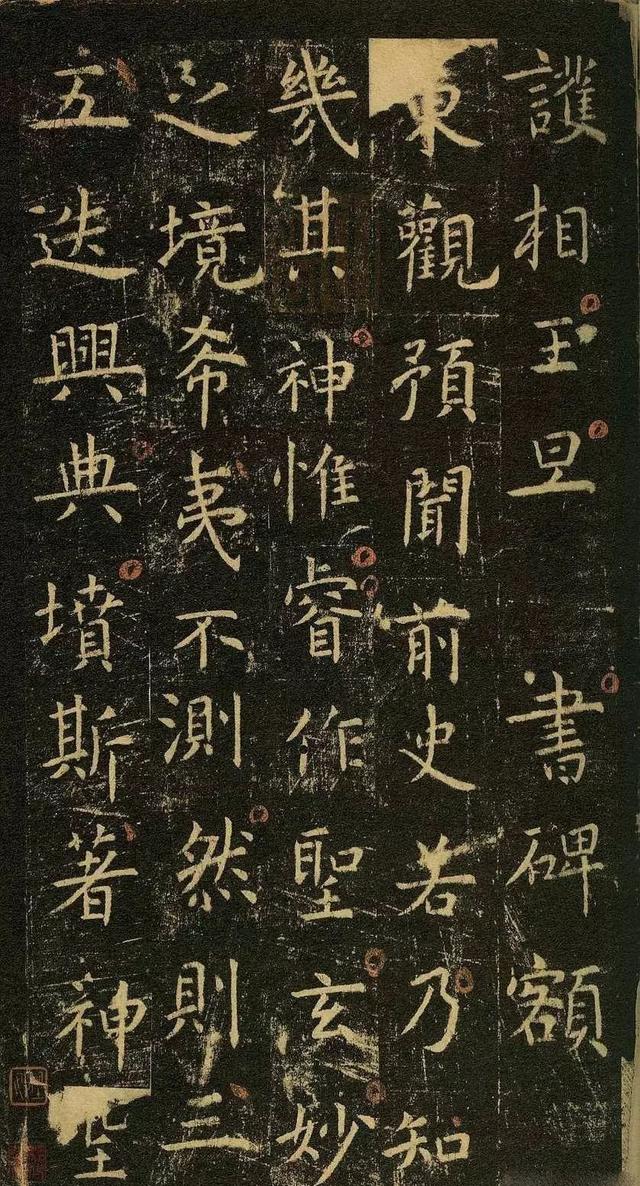 護相王旦書碑額
東觀預聞前史若乃知
幾其神惟睿作聖玄妙
之境希夷不測然則三
五迭興典墳斯著神